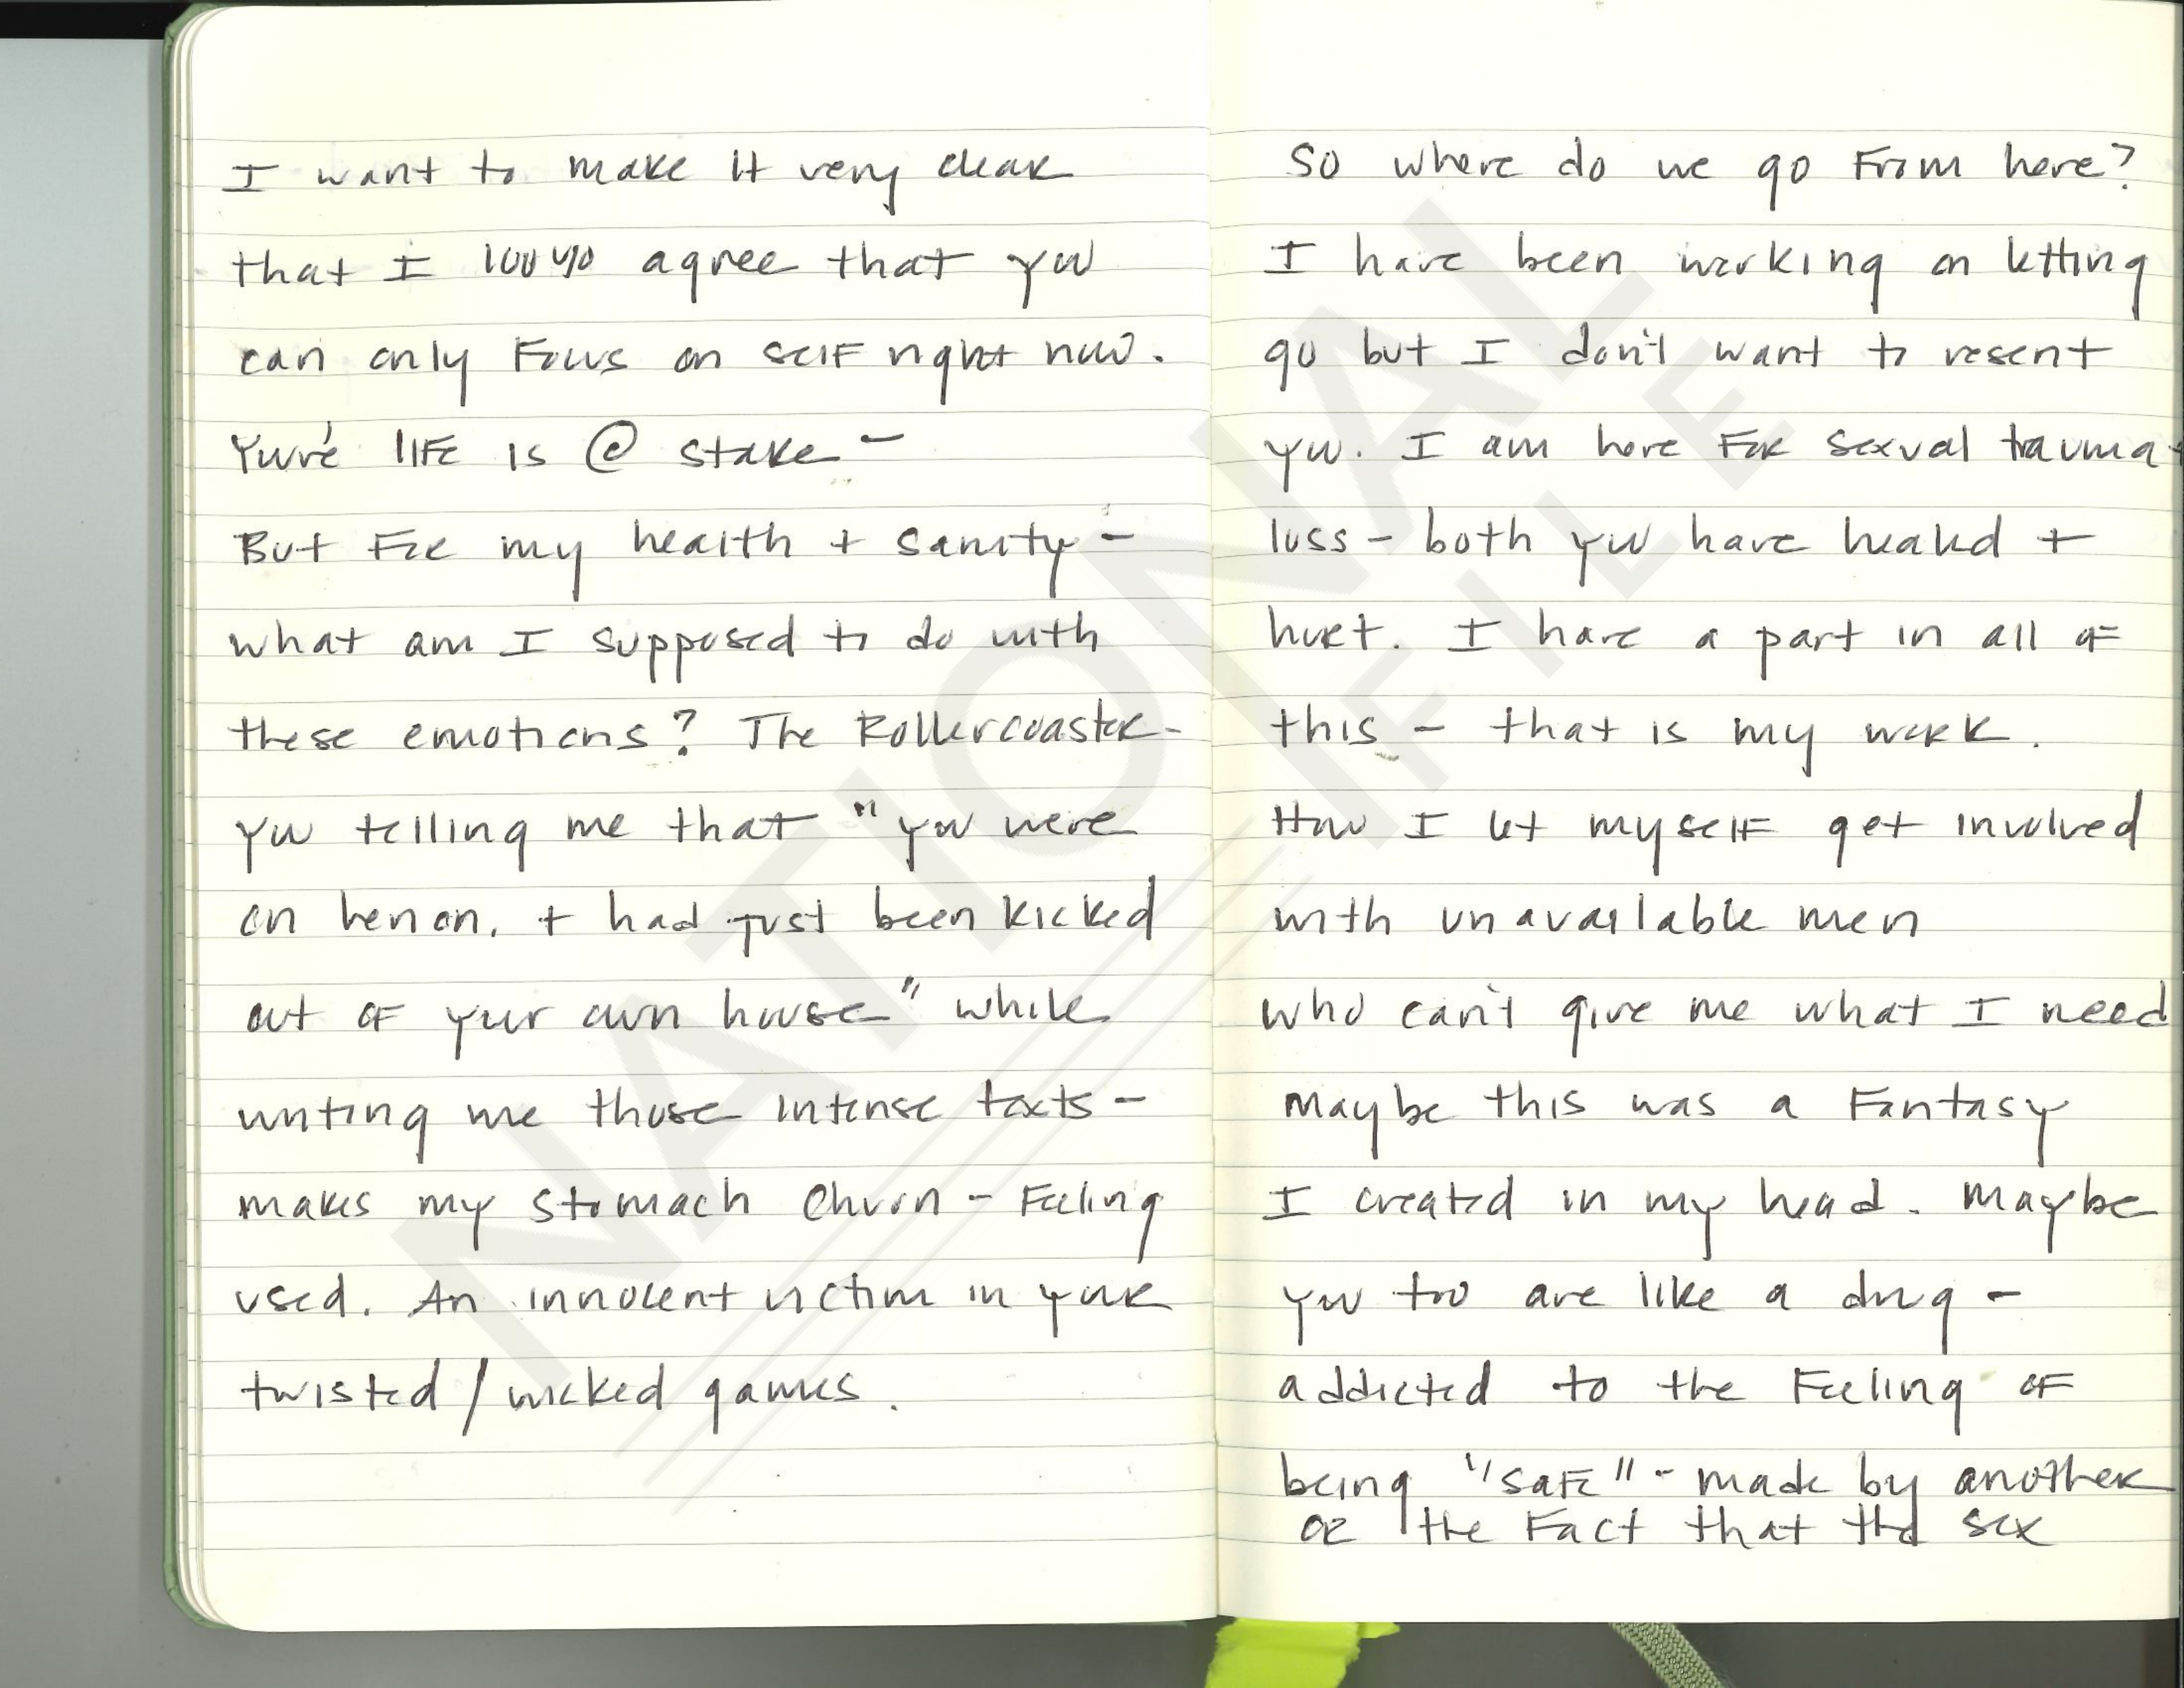 I want to make it very clear
that I 100% agree that you
can only Focus on self right now.
You're life is @ stake -
But For my health + sanity -
what am I supposed to do with
these emotions? The Rollercoaster -
you telling me that "you were
on heroin, + had just been kicked
out of your own house" while
writing me those intense texts -
makes my stomach churn - Feeling
used. An innocent victim in your
twisted / wicked games.
So where do we go From here?
I have been working on letting
go but I don't want to resent
you. I am here For sexual trauma +
loss - both you have healed +
hurt. I have a part in all of
this - that is my work.
How I let myself get involved
with unavailable men
who can't give me what I need
Maybe this was a Fantasy
I created in my head. Maybe
you too are like a drug -
addicted to the Feeling of
being "safe" - made by another
or the Fact that the sex
NATIONAL
FILE